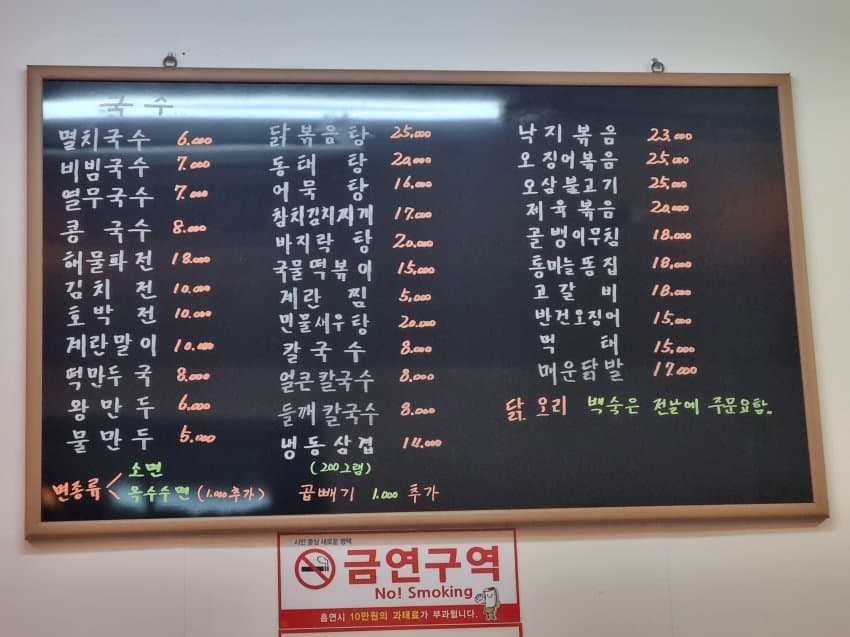 국수
멸치국수 6.000
비빔국수 7.000
열무국수 7.000
콩 국수 8.000
해물파전 18.000
김치 전 10.000
호박 전 10.000
계란말이 10.000
떡만두국 8.000
왕만두 6.000
물만두 5.000
면종류 < 소면
옥수수면 (1.000추가)
닭볶음탕 25,000
동태 탕 20,000
어묵 탕 16,000
참치김치찌개 17.000
바지락 탕 20.000
국물떡볶이 15,000
계란 찜 5,000
민물새우탕 20.000
칼국수 8.000
얼큰칼국수 8,000
들깨칼국수 8.000
냉동삼겹 14.000
(200그램)
곱빼기 1.000 추가
낙지볶음 23.000
오징어볶음 25,000
오삼불고기 25,000
제육볶음 20,000
골뱅이무침 18.000
통마늘똥집 18,000
고갈 비 18.000
반건오징어 15.000
먹 태 15,000
매운닭발 17.000
닭. 오리 백숙은 전날에 주문요함.
시민 중심 새로운 평택
금연구역
No! Smoking
흡연시 10만원의 과태료가 부과됩니다.